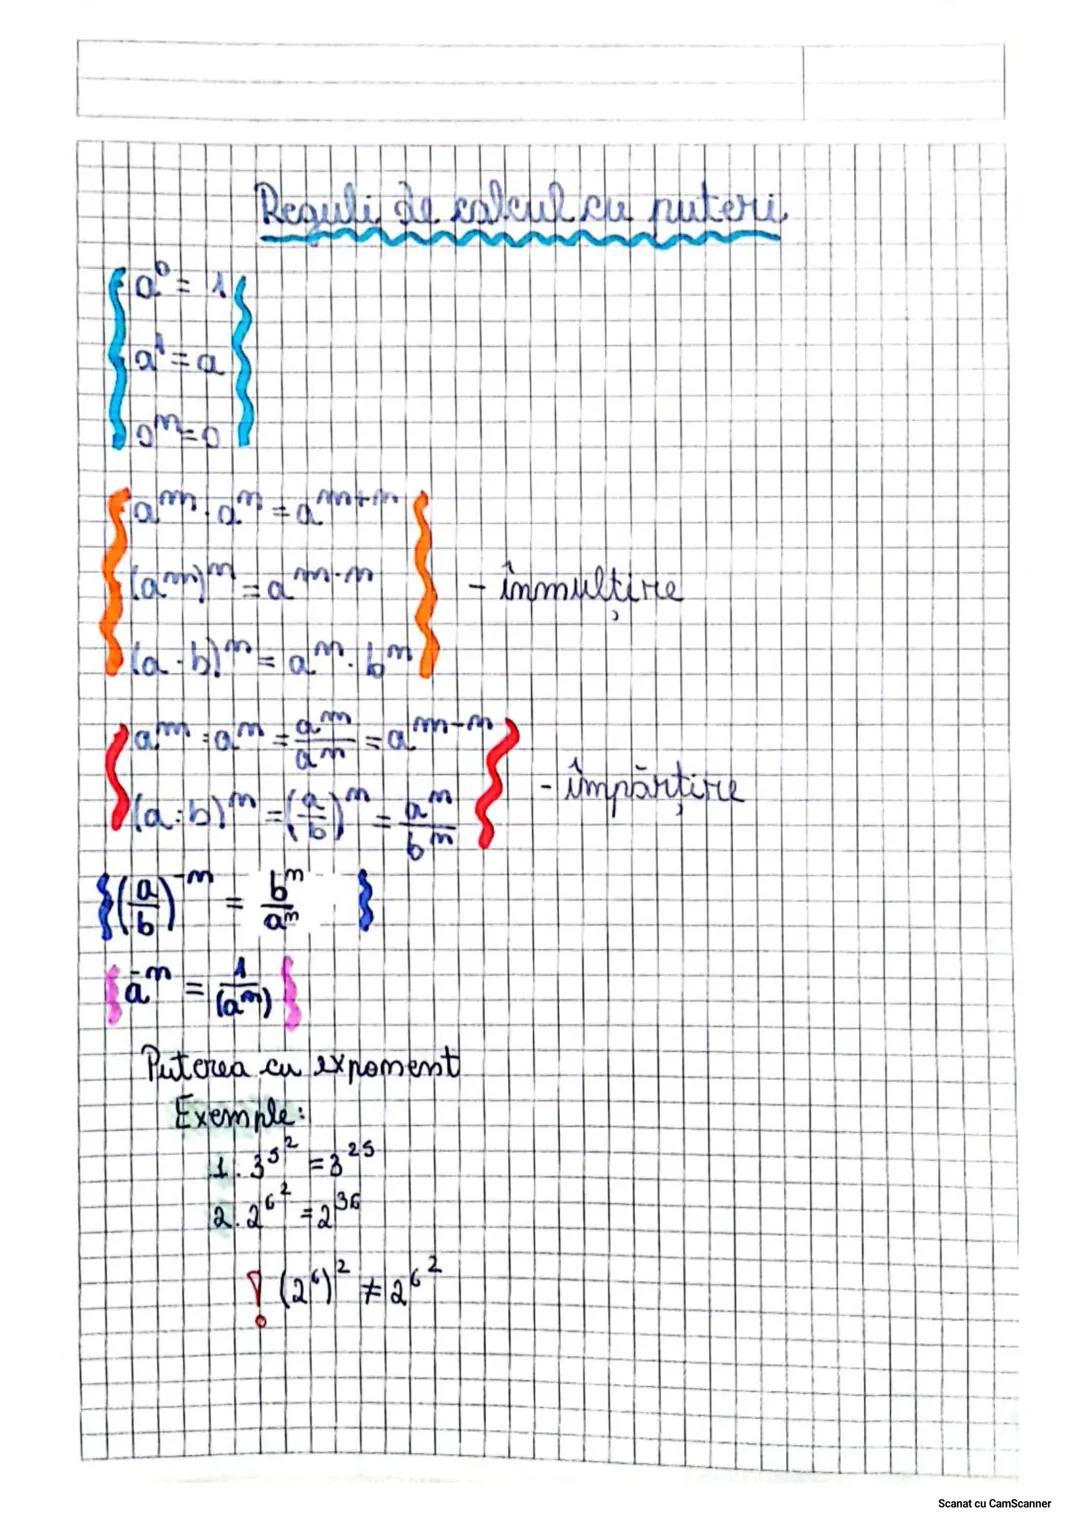 Reguli de calcul cu puteri
a⁰ = 1
a¹ = a
0ⁿ = 0
aᵐ · aⁿ = aᵐ⁺ⁿ
(aᵐ)ⁿ = aᵐ·ⁿ
- înmulțire
(a · b)ⁿ = aⁿ · bⁿ
aᵐ : aⁿ = aᵐ/aⁿ = aᵐ⁻ⁿ
- împărțire
(a : b)ⁿ = (a/b)ⁿ = aⁿ/bⁿ
(a/b)⁻ⁿ = bⁿ/aⁿ
a⁻ⁿ = 1/(aⁿ)
Puterea cu exponent
Exemple:
1. 3^5^2 = 3^25
2. 2^6^2 = 2^36
! (2^6)^2 ≠ 2^6^2
Scanat cu CamScanner